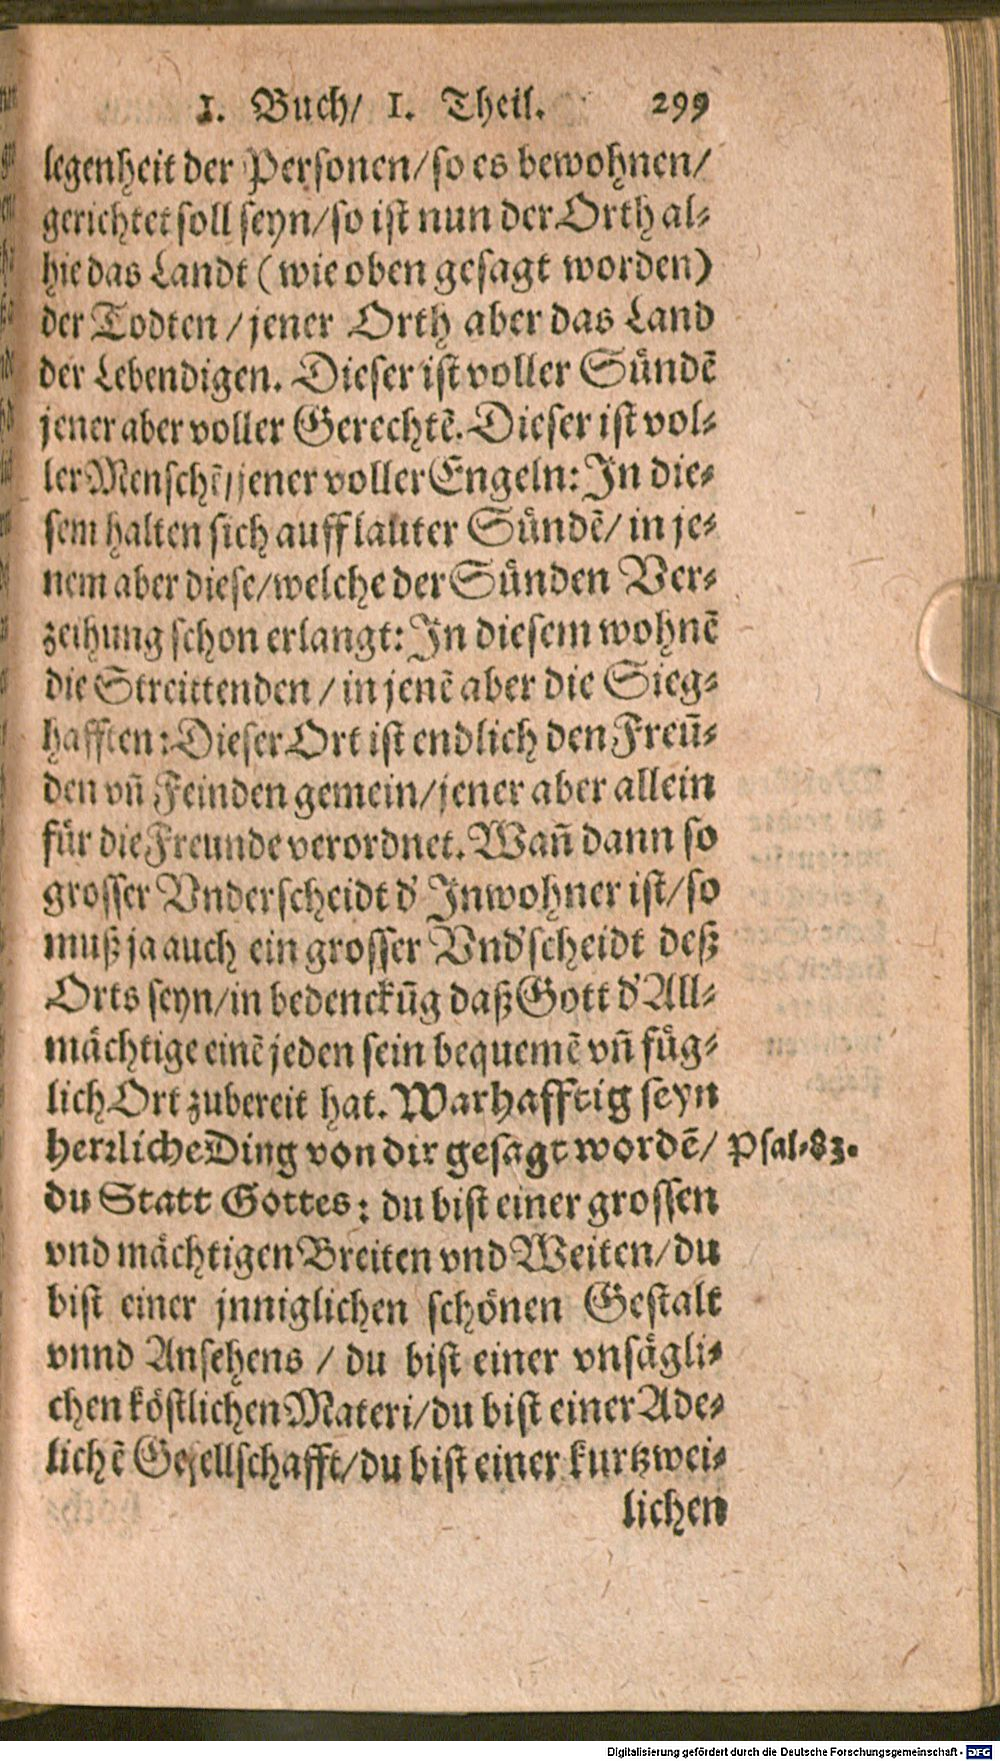 1. Buch/ 1. Theil. 299
legenheit der Personen/ so es bewohnen/
gerichtet soll seyn/ so ist nun der Orth al⸗
hie das Landt (wie oben gesagt worden)
der Todten / jener Orth aber das Land
der Lebendigen. Dieser ist voller Sündẽ
jener aber voller Gerechtẽ. Dieser ist vol⸗
ler Menschẽ/ jener voller Engeln: In die⸗
sem halten sich auff lauter Sündẽ/ in je⸗
nem aber diese/ welche der Sünden Ver⸗
zeihung schon erlangt: In diesem wohnẽ
die Streittenden / in jenẽ aber die Sieg⸗
hafften: Dieser Ort ist endlich den Freũ⸗
den vñ Feinden gemein/ jener aber allein
für die Freunde verordnet. Wañ dann so
grosser Vnderscheidt d' Inwohner ist/ so
muß ja auch ein grosser Vnd'scheidt deß
Orts seyn/ in bedenckũg daß Gott d' All⸗
mächtige einẽ jeden sein bequemẽ vñ füg⸗
lich Ort zubereit hat. Warhafftig seyn
herrliche Ding von dir gesagt wordẽ/ Psal. 83.
du Statt Gottes: du bist einer grossen
vnd mächtigen Breiten vnd Weiten/ du
bist einer jnniglichen schönen Gestalt
vnnd Ansehens / du bist einer vnsägli⸗
chen köstlichen Materi/ du bist einer Ade⸗
lichẽ Gesellschafft/ du bist einer kurtzwei⸗
lichen
Digitalisierung gefördert durch die Deutsche Forschungsgemeinschaft - DFG